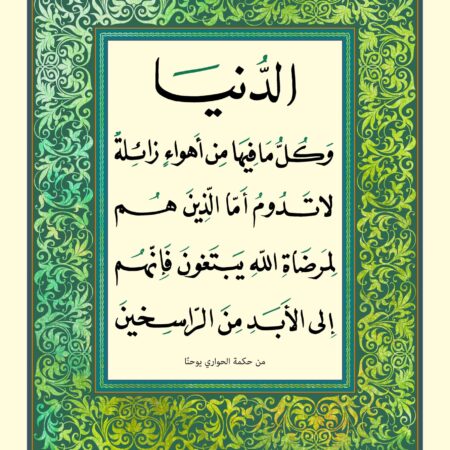 الدُّنيَا
وَكُلُّ مَا فِيهَا مِن أَهواءٍ زائِلةٌ
لا تَدُومُ أمّا الّذِينَ هُم
لمرضَاةِ اللهِ يَبتَغونَ فَإنّهُم
إلى الأبَدِ مِنَ الرّاسِخينَ
من حكمة الحواري يوحنّا